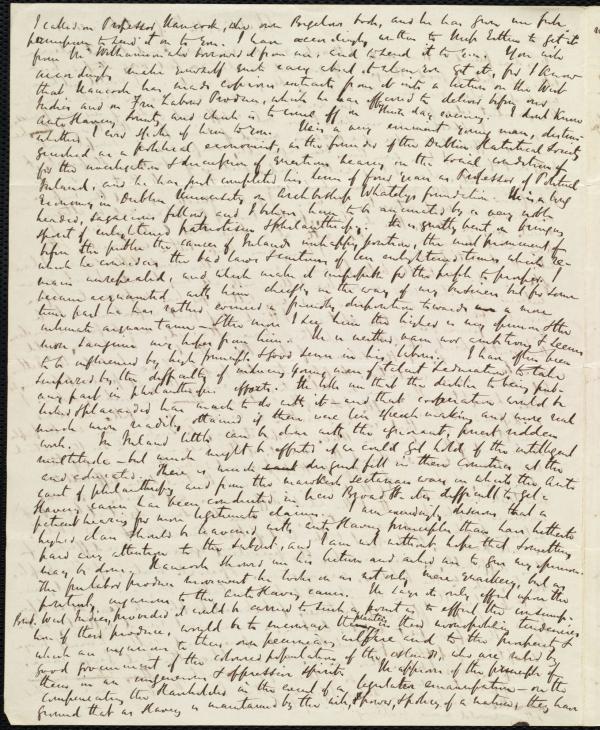 I called on Professor Hancock, who owns Bigelow's book, and he has given me full
permission to send it on to you. I have accordingly written to to get it
from the who borrowed it from me, and to send it to you. You will
accordingly make yourself quite easy about it when you get it, for I know
that Hancock has made copious extracts from it into a lecture on the West
Indies and on Free Labour Produce, which he has offered to deliver before our
Anti Slavery Society, and which is to come off on this day evening. I don't know
whether I ever spoke of him to you. He is a very eminent young man, distin-
guished as a political economist, as the founder of the Dublin Statistical Society
for the investigation & discussion of questions bearing on the social condition of
Ireland, and he has just completed his term of four years as Professor of Political
Economy in Dublin University on Archbishop Whately's foundation. He is a long
headed, sagacious fellow, and I believe him to be animated by a very noble
spirit of enlightened patriotism & philanthropy. He is greatly bent on bringing
before the public the causes of Ireland's unhappy position, the most prominent of
which he considers the bad laws & customs of less enlightened times which re-
main unrepealed, and which make it impossible for the people to prosper. I
became acquainted with him chiefly in the way of my business but for some
time past he has rather evinced a friendly disposition towards a more
intimate acquaintance — & the more I see him the higher is my opinion & the
more sanguine my hopes from him. He is neither vain nor ambitious & seems
to be influenced by high principle & good sense in his labors. I have often been
surprised by the difficulty of inducing young men of talent & education to take
any part in philanthropic efforts. He tells me that the dislike to being pub-
lished & placarded has much to do with it — and that cooperation would be
much more readily attained if there were less speech making and more real
work. In Ireland little can be done with the ignorant, priest ridden
multitude — but much might be effected if we could get hold of the intelligent
and educated. There is much disgust felt in these countries at the
cant of philanthropy, and from the markedly sectarian way in which the Anti
Slavery cause has been conducted in New Broad St. it is difficult to get a
patient hearing for more legitimate claims. I am exceedingly desirous that a
higher class should be leavened with anti slavery principles than have hitherto
paid any attention to the subject, and I am not without hope that something
may be done. Hancock showed me his lecture and asked me to give my opinion.
The free labor produce movement he looks on as not only mere quackery, but as
positively injurious to the Anti Slavery cause. He says its only effect upon the
Brit. West Indies, provided it could be carried to such a point as to affect the consump-
tion of their produce, would be to encourage the planters in their monopolist tendencies
which are injurious to their own pecuniary welfare and to the prosperity &
good government of the coloured population of the islands, who are ruled by
them in an ungenerous & oppressive spirit. He approves of the principle of
compensating the slaveholders in the event of a legislative emancipation — on the
ground that as slavery is maintained by the will, power, & policy of a nation, they have